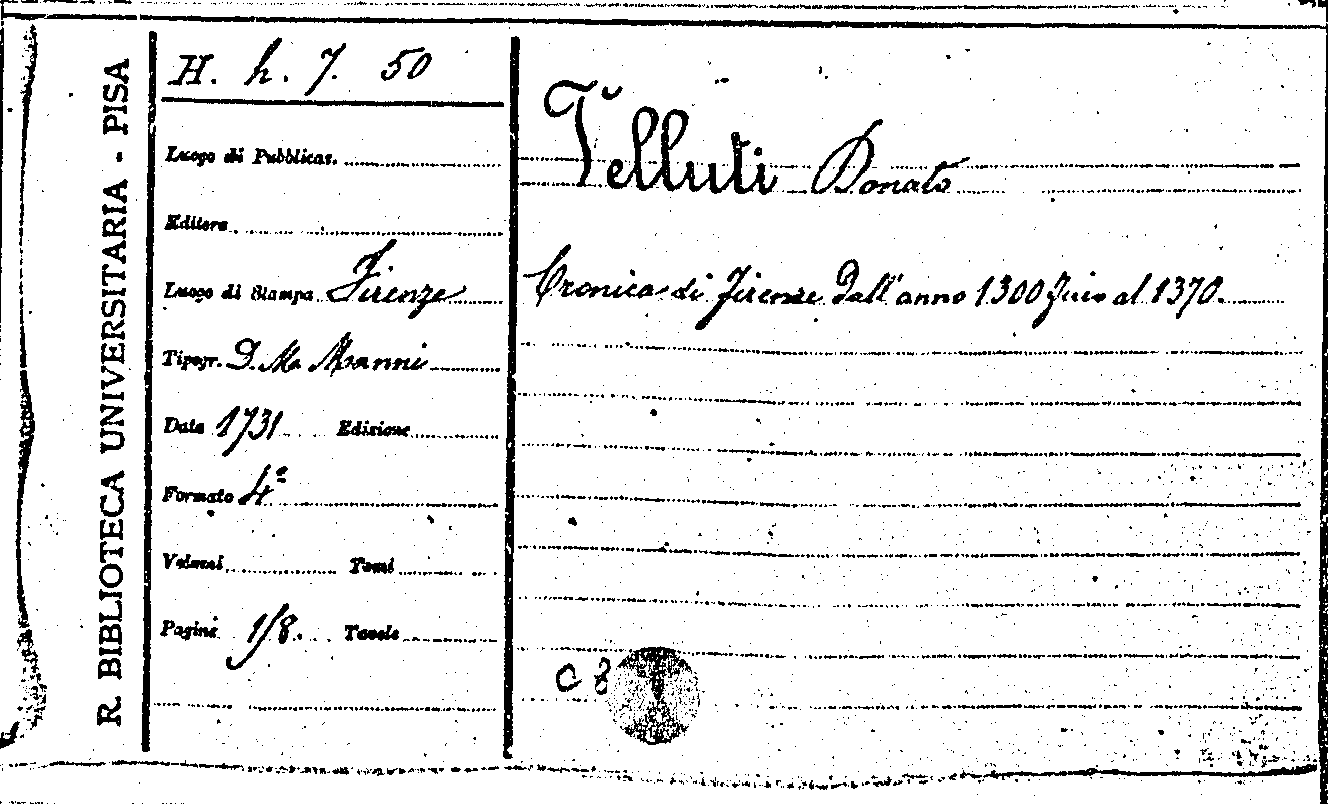 R. BIBLIOTECA UNIVERSITARIA - PISA
H. h. 7. 50
Luogo di Pubblicaz.
Editore
Luogo di Stampa Firenze
Tipogr. D. M. Manni
Data 1731 Edizione
Formato 4º
Volumi Tomi
Pagine Tavole
Velluti Donato
Cronica di Firenze dall'anno 1300 fino al 1370.
C 8